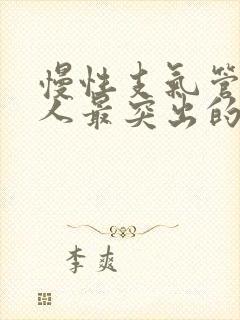 慢性支氣管
人最突出的
李爽